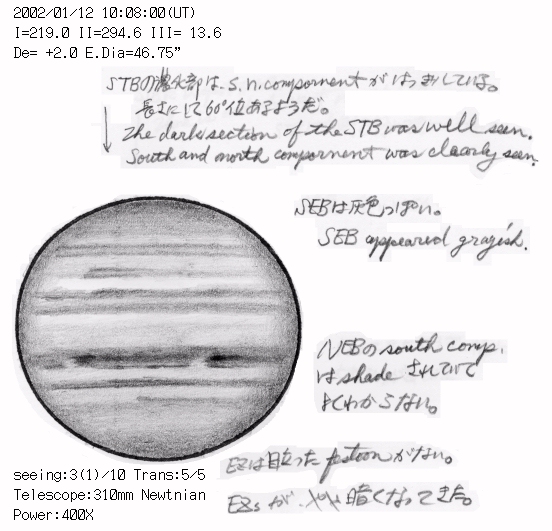 2002/01/12 10:08:00(UT)
I=219.0 II=294.6 III= 13.6
De= +2.0 E.Dia=46.75"
STBの濃い部は、S.n.compornentがはっきりしている。
長さにして60°位あるようだ。
The dark section of the STB was well seen.
South and north compornent was clearly seen.
SEBは灰色っぽい。
SEB appeared grayish.
NEBのsouth comp.
はshadeされていて
よくわからない。
EZは目立ったfestoonがない。
EZsが、やや暗くなってきた。
seeing:3(1)/10 Trans:5/5
Telescope:310mm Newtnian
Power:400X